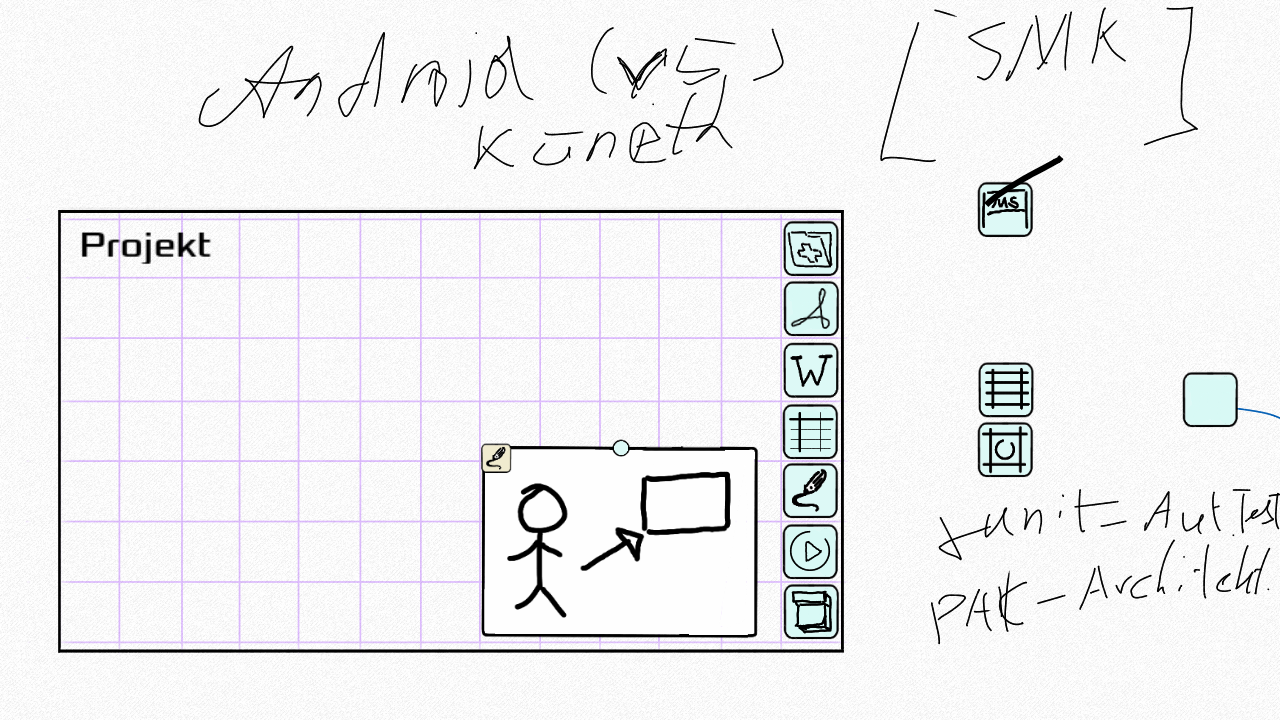 Android (v5)
Künneth
[SMK]
MS
Projekt
W
Junit = Aut Test
PAK - Architekt.